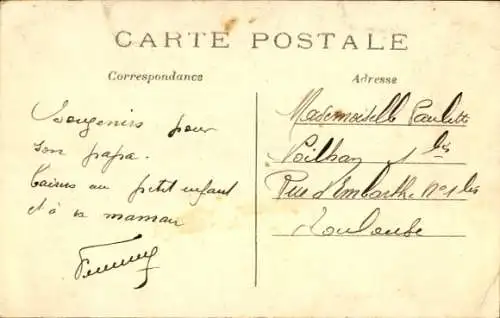 CARTE POSTALE
Correspondance
Adresse
Souvenirs pour
son papa.
baisers au petit enfant
et à sa maman
Mademoiselle Paulette
1 bis
Rue d'Embarthe N° 1 bis
Toulouse